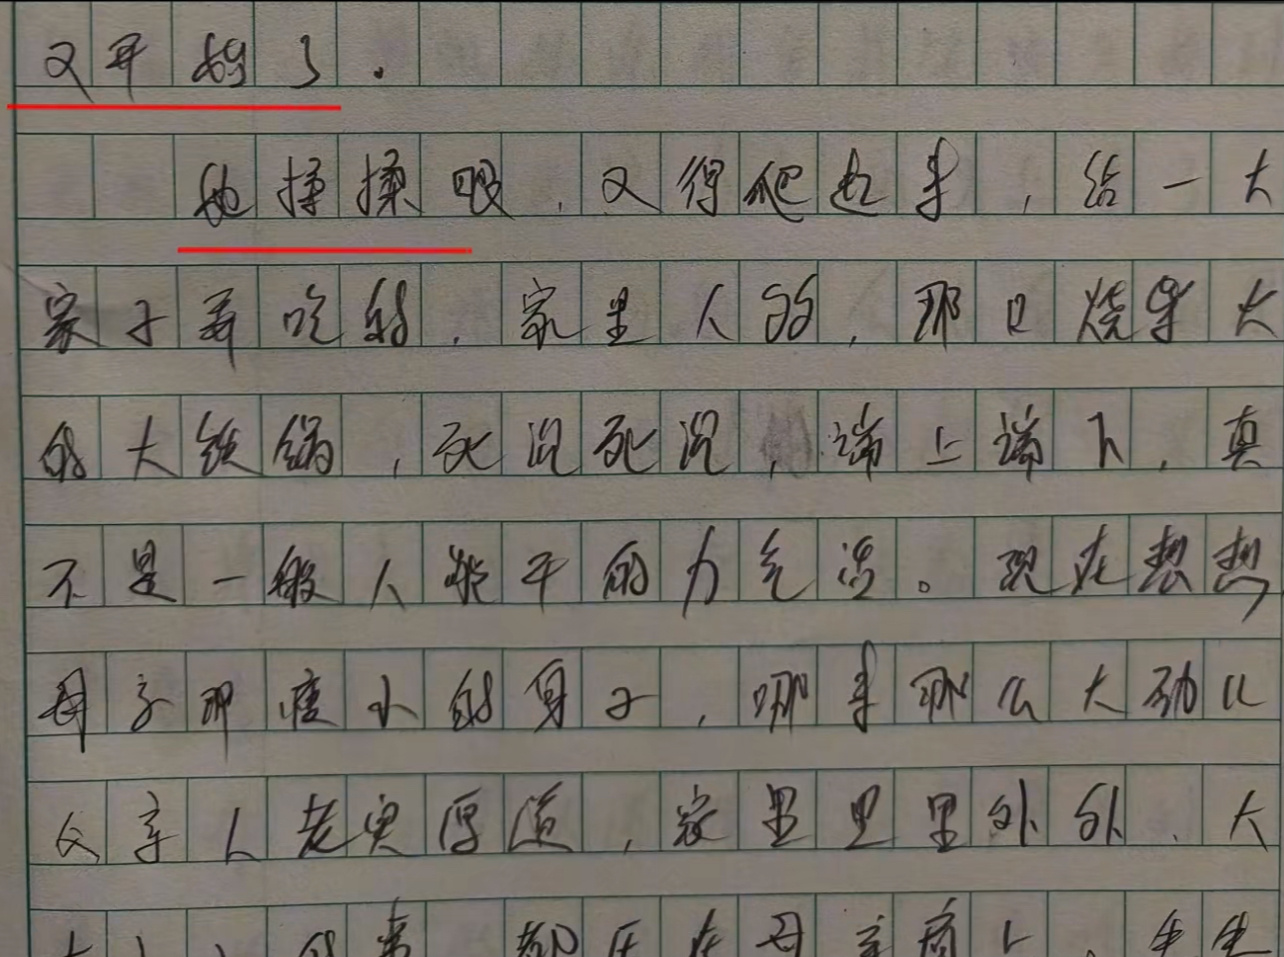 又开始了.
她揉揉眼,又得爬起来,给一大
家子弄吃的.家里人多,那口烧
的大铁锅,死沉死沉,端上端下,真
不是一般人能干的力气活。现在想想
母亲那瘦小的身子,哪来那么大劲儿
父亲人老实厚道,家里里里外外,大
都压在母亲肩上